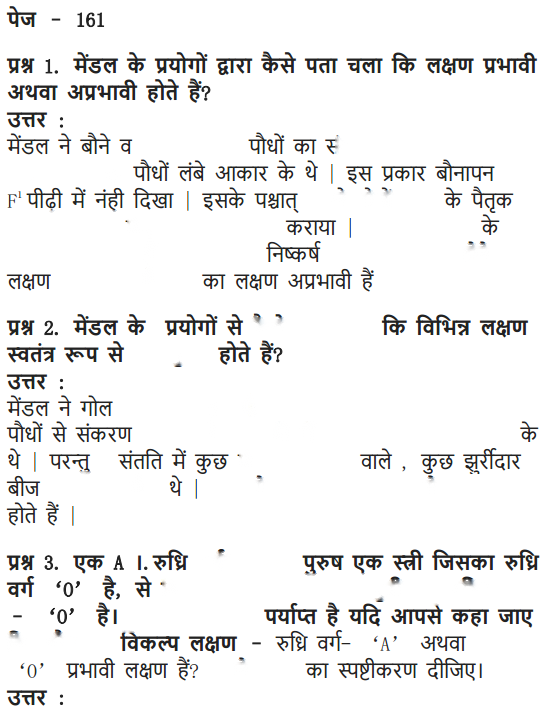 पेज - 161
प्रश्न 1. मेंडल के प्रयोगों द्वारा कैसे पता चला कि लक्षण प्रभावी
अथवा अप्रभावी होते हैं?
उत्तर :
मेंडल ने बौने व पौधों का
पौधों लंबे आकार के थे | इस प्रकार बौनापन
F¹ पीढ़ी में नंही दिखा | इसके पश्चात् के पैतृक
कराया | के
निष्कर्ष
लक्षण का लक्षण अप्रभावी हैं
प्रश्न 2. मेंडल के प्रयोगों से कि विभिन्न लक्षण
स्वतंत्र रूप से होते हैं?
उत्तर :
मेंडल ने गोल
पौधों से संकरण के
थे | परन्तु संतति में कुछ वाले , कुछ झुर्रीदार
बीज थे |
होते हैं |
प्रश्न 3. एक A ।. रुध्रि पुरुष एक स्त्री जिसका रुध्रि
वर्ग ‘0’ है, से
- ‘0’ है। पर्याप्त है यदि आपसे कहा जाए
विकल्प लक्षण - रुध्रि वर्ग- ‘A’ अथवा
‘0’ प्रभावी लक्षण हैं? का स्पष्टीकरण दीजिए।
उत्तर :